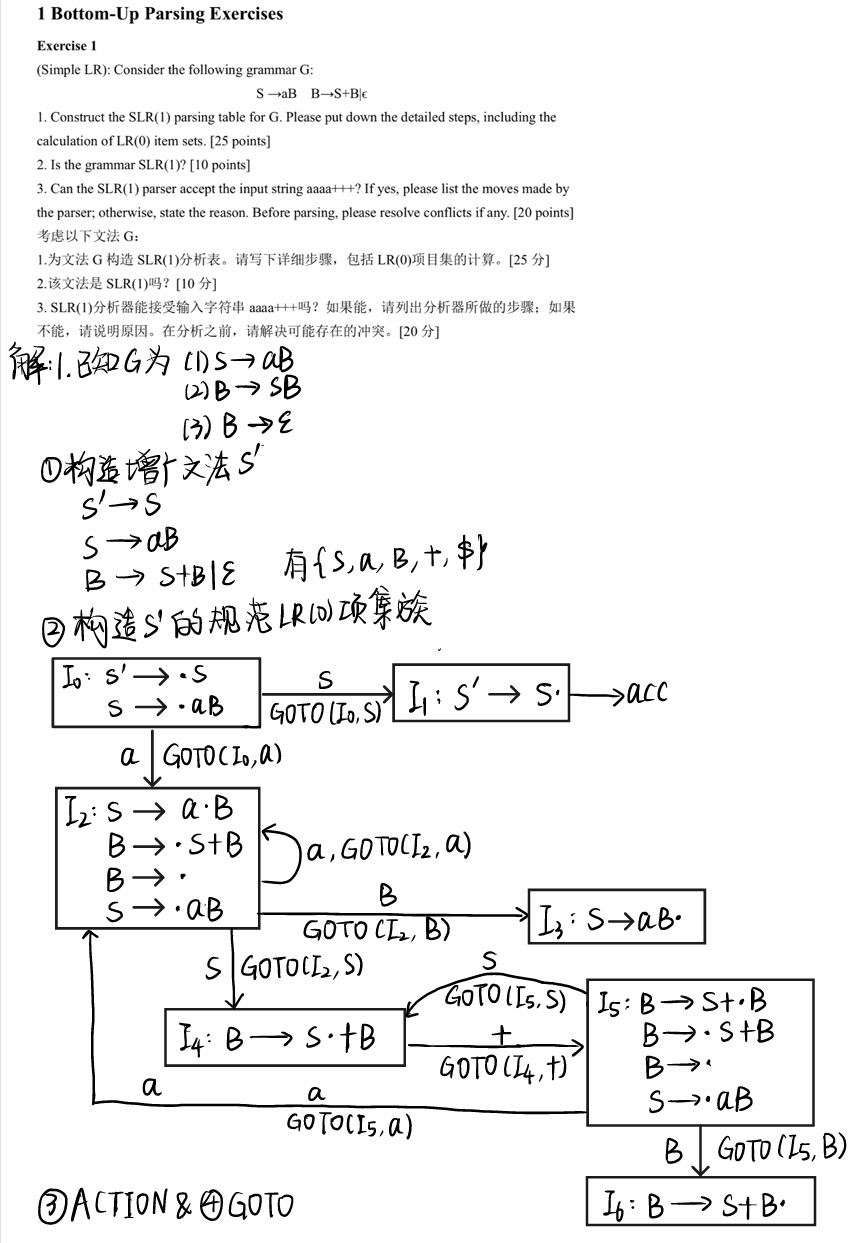 1 Bottom-Up Parsing Exercises
Exercise 1
(Simple LR): Consider the following grammar G:
S →aB B→S+B|ϵ
1. Construct the SLR(1) parsing table for G. Please put down the detailed steps, including the
calculation of LR(0) item sets. [25 points]
2. Is the grammar SLR(1)? [10 points]
3. Can the SLR(1) parser accept the input string aaaa+++? If yes, please list the moves made by
the parser; otherwise, state the reason. Before parsing, please resolve conflicts if any. [20 points]
考虑以下文法 G：
1.为文法 G 构造 SLR(1)分析表。请写下详细步骤，包括 LR(0)项目集的计算。[25 分]
2.该文法是 SLR(1)吗？[10 分]
3. SLR(1)分析器能接受输入字符串 aaaa+++吗？如果能，请列出分析器所做的步骤；如果
不能，请说明原因。在分析之前，请解决可能存在的冲突。[20 分]
解:1.已知G为 (1) S→aB
(2) B→SB
(3) B→ε
①构造增广文法S'
S'→S
S→aB
B→S+B|ε 有{S,a,B,+,$}
②构造S'的规范LR(0)项集族
I0: S'→·S
S→·aB
S
GOTO(I0,S)
I1: S'→S·
acc
a GOTO(I0,a)
I2: S→a·B
B→·S+B
B→·
S→·aB
a,GOTO(I2,a)
B
GOTO(I2,B)
I3: S→aB·
S GOTO(I2,S)
S
GOTO(I5,S)
I4: B→S·+B
+
GOTO(I4,+)
I5: B→S+·B
B→·S+B
B→·
S→·aB
a
a
GOTO(I5,a)
B GOTO(I5,B)
I6: B→S+B·
③ACTION&④GOTO